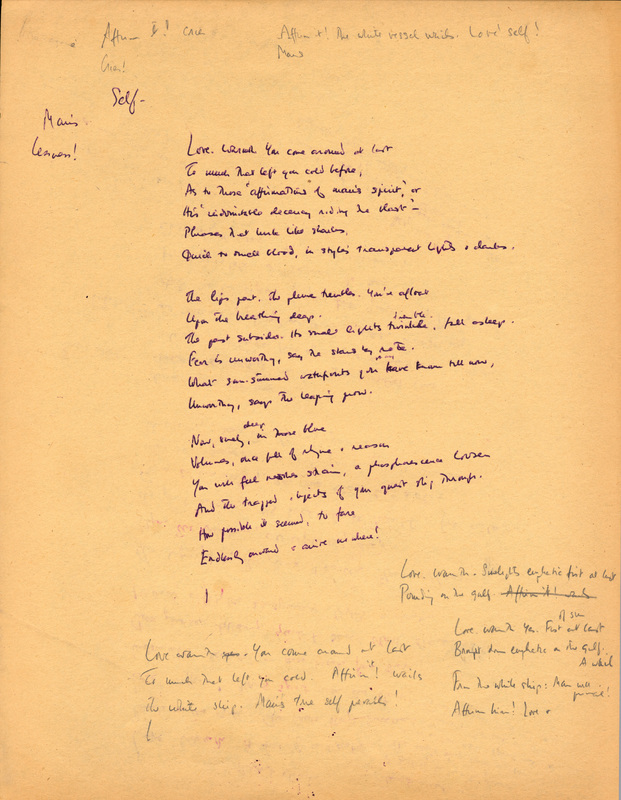 Affirm it! Cries
Affirm it! The white vessel wails. Love! self!
Mans
Cries!
Self-
Mans
Love. Warmth. You come around at last
To much that left you cold before,
As to those "affirmations" of man's spirit," or
His "indomitable decency riding the blast" -
Phrases that lurk like sharks,
Quick to smell blood, in style's transparent lights & darks.
The lips part. The plume trembles. You're afloat
Upon the breathing deep.
The past subsides. Its small lights twinkle, fall asleep.
tremble
Fear is unworthy, say the stars by rote.
What sun-stunned you have known till now,
Unworthy, says the leaping prow.
deep
Now, surely, in those blue
Volumes, once full of rhyme & reason
You will feel meshes strain, a phosphorescence loosen
And the trapped objects of your quest slip through.
How possible it seemed, to fare
Endlessly onward & arrive nowhere!
Love. Warmth. Sunlight's emphatic first at last
Pounding on the gulf. Affirm it! wails
Love. Warmth. Yes. First at last
of sun
Brought down emphatic on the gulf.
A which
From the white ship: Man will
prevail!
Affirm him! Love &
Love warmth You come around at last
To much that left you cold. Affirm it! wails
The white ship. Man's true self possible!